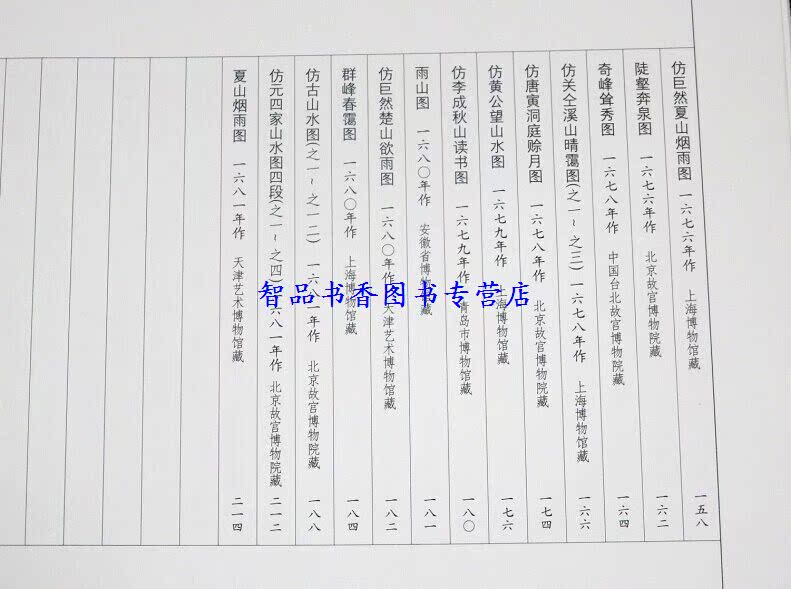 仿巨然夏山烟雨图 一六七六年作 上海博物馆藏 一五八
陡壑奔泉图 一六七六年作 北京故宫博物院藏 一六二
奇峰耸秀图 一六七八年作 中国台北故宫博物院藏 一六四
仿关仝溪山晴霭图(之一~之三) 一六七八年作 上海博物馆藏 一六六
仿唐寅洞庭赊月图 一六七八年作 北京故宫博物院藏 一七四
仿黄公望山水图 一六七九年作 上海博物馆藏 一七六
仿李成秋山读书图 一六七九年作 青岛市博物馆藏 一八〇
雨山图 一六八〇年作 安徽省博物馆藏 一八一
仿巨然楚山欲雨图 一六八〇年作 天津艺术博物馆藏 一八二
群峰春霭图 一六八〇年作 上海博物馆藏 一八四
仿古山水图(之一~之一二) 一六八一年作 北京故宫博物院藏 一八八
仿元四家山水图四段(之一~之四) 一六八一年作 北京故宫博物院藏 二一二
夏山烟雨图 一六八一年作 天津艺术博物馆藏 二一四
智品书香图书专营店